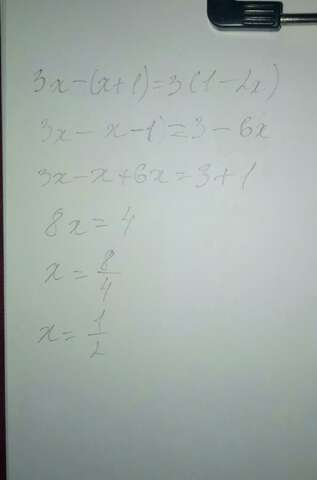 3x-(x+1)=3(1-2x)
3x-x-1)=3-6x
3x-x+6x=3+1
8x=4
x=8/4
x=1/2